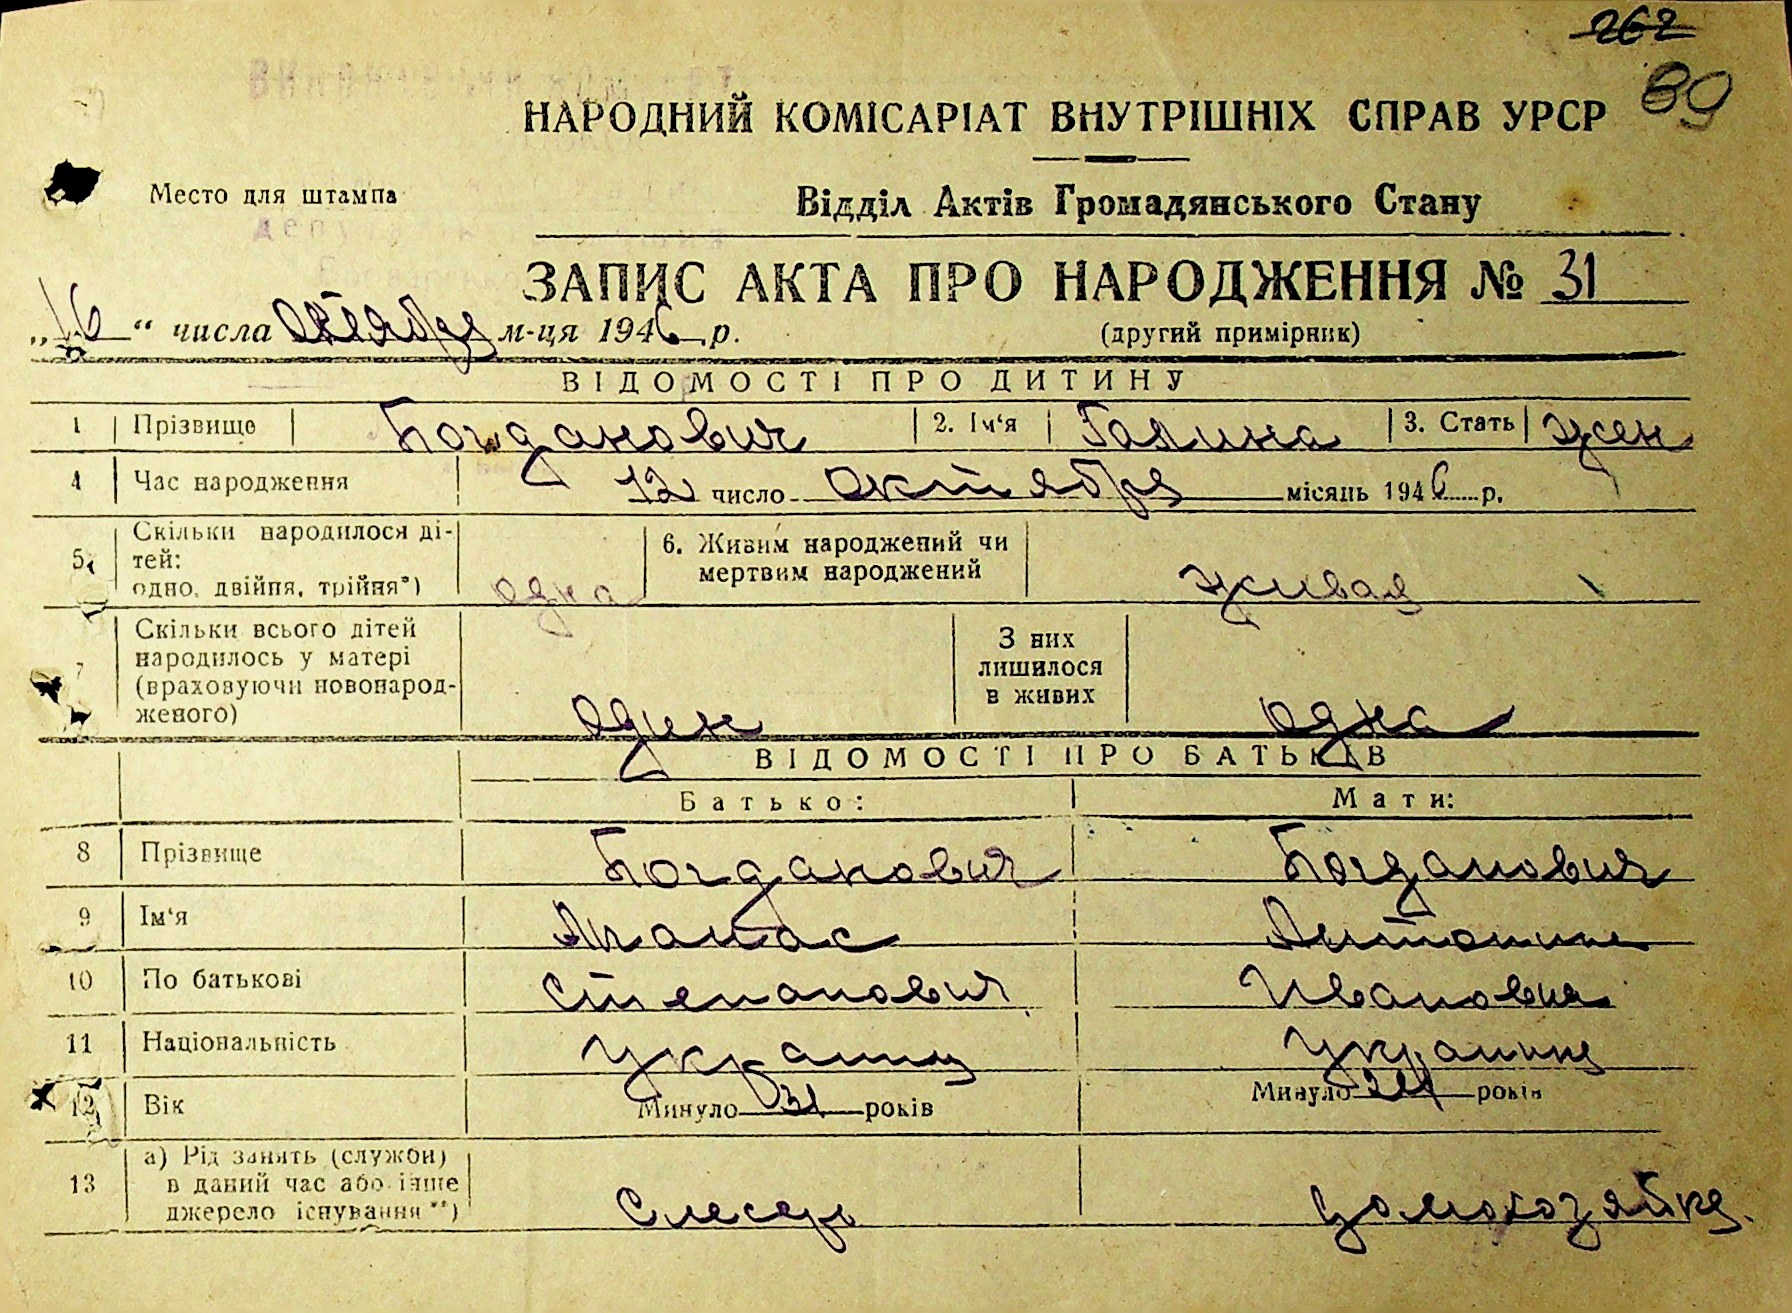 262
89
НАРОДНИЙ КОМІСАРІАТ ВНУТРІШНІХ СПРАВ УРСР
Место для штампа
Відділ Актів Громадянського Стану
ЗАПИС АКТА ПРО НАРОДЖЕННЯ № 31
„16“ числа Октября м-ця 1946 р.
(другий примірник)
ВІДОМОСТІ ПРО ДИТИНУ
1 Прізвище Богданович 2. Ім‘я Галина 3. Стать жен
4 Час народження 12 число октября місяць 1946 р.
5. Скільки народилося ді-
тей:
одно, двійня, трійня*) одна
6. Живим народжений чи
мертвим народжений живая
7 Скільки всього дітей
народилось у матері
(враховуючи новонарод-
женого) один
З них
лишилося
в живих одна
ВІДОМОСТІ ПРО БАТЬКІВ
Батько: Мати:
8 Прізвище Богданович Богданович
9 Ім‘я Апанас Антонина
10 По батькові Степанович Ивановна
11 Національність украинц украинц
12 Вік Минуло 31 років Минуло років
13 а) Рід занять (служби)
в даний час або інше
джерело існування**) Слесарь домохозяйка